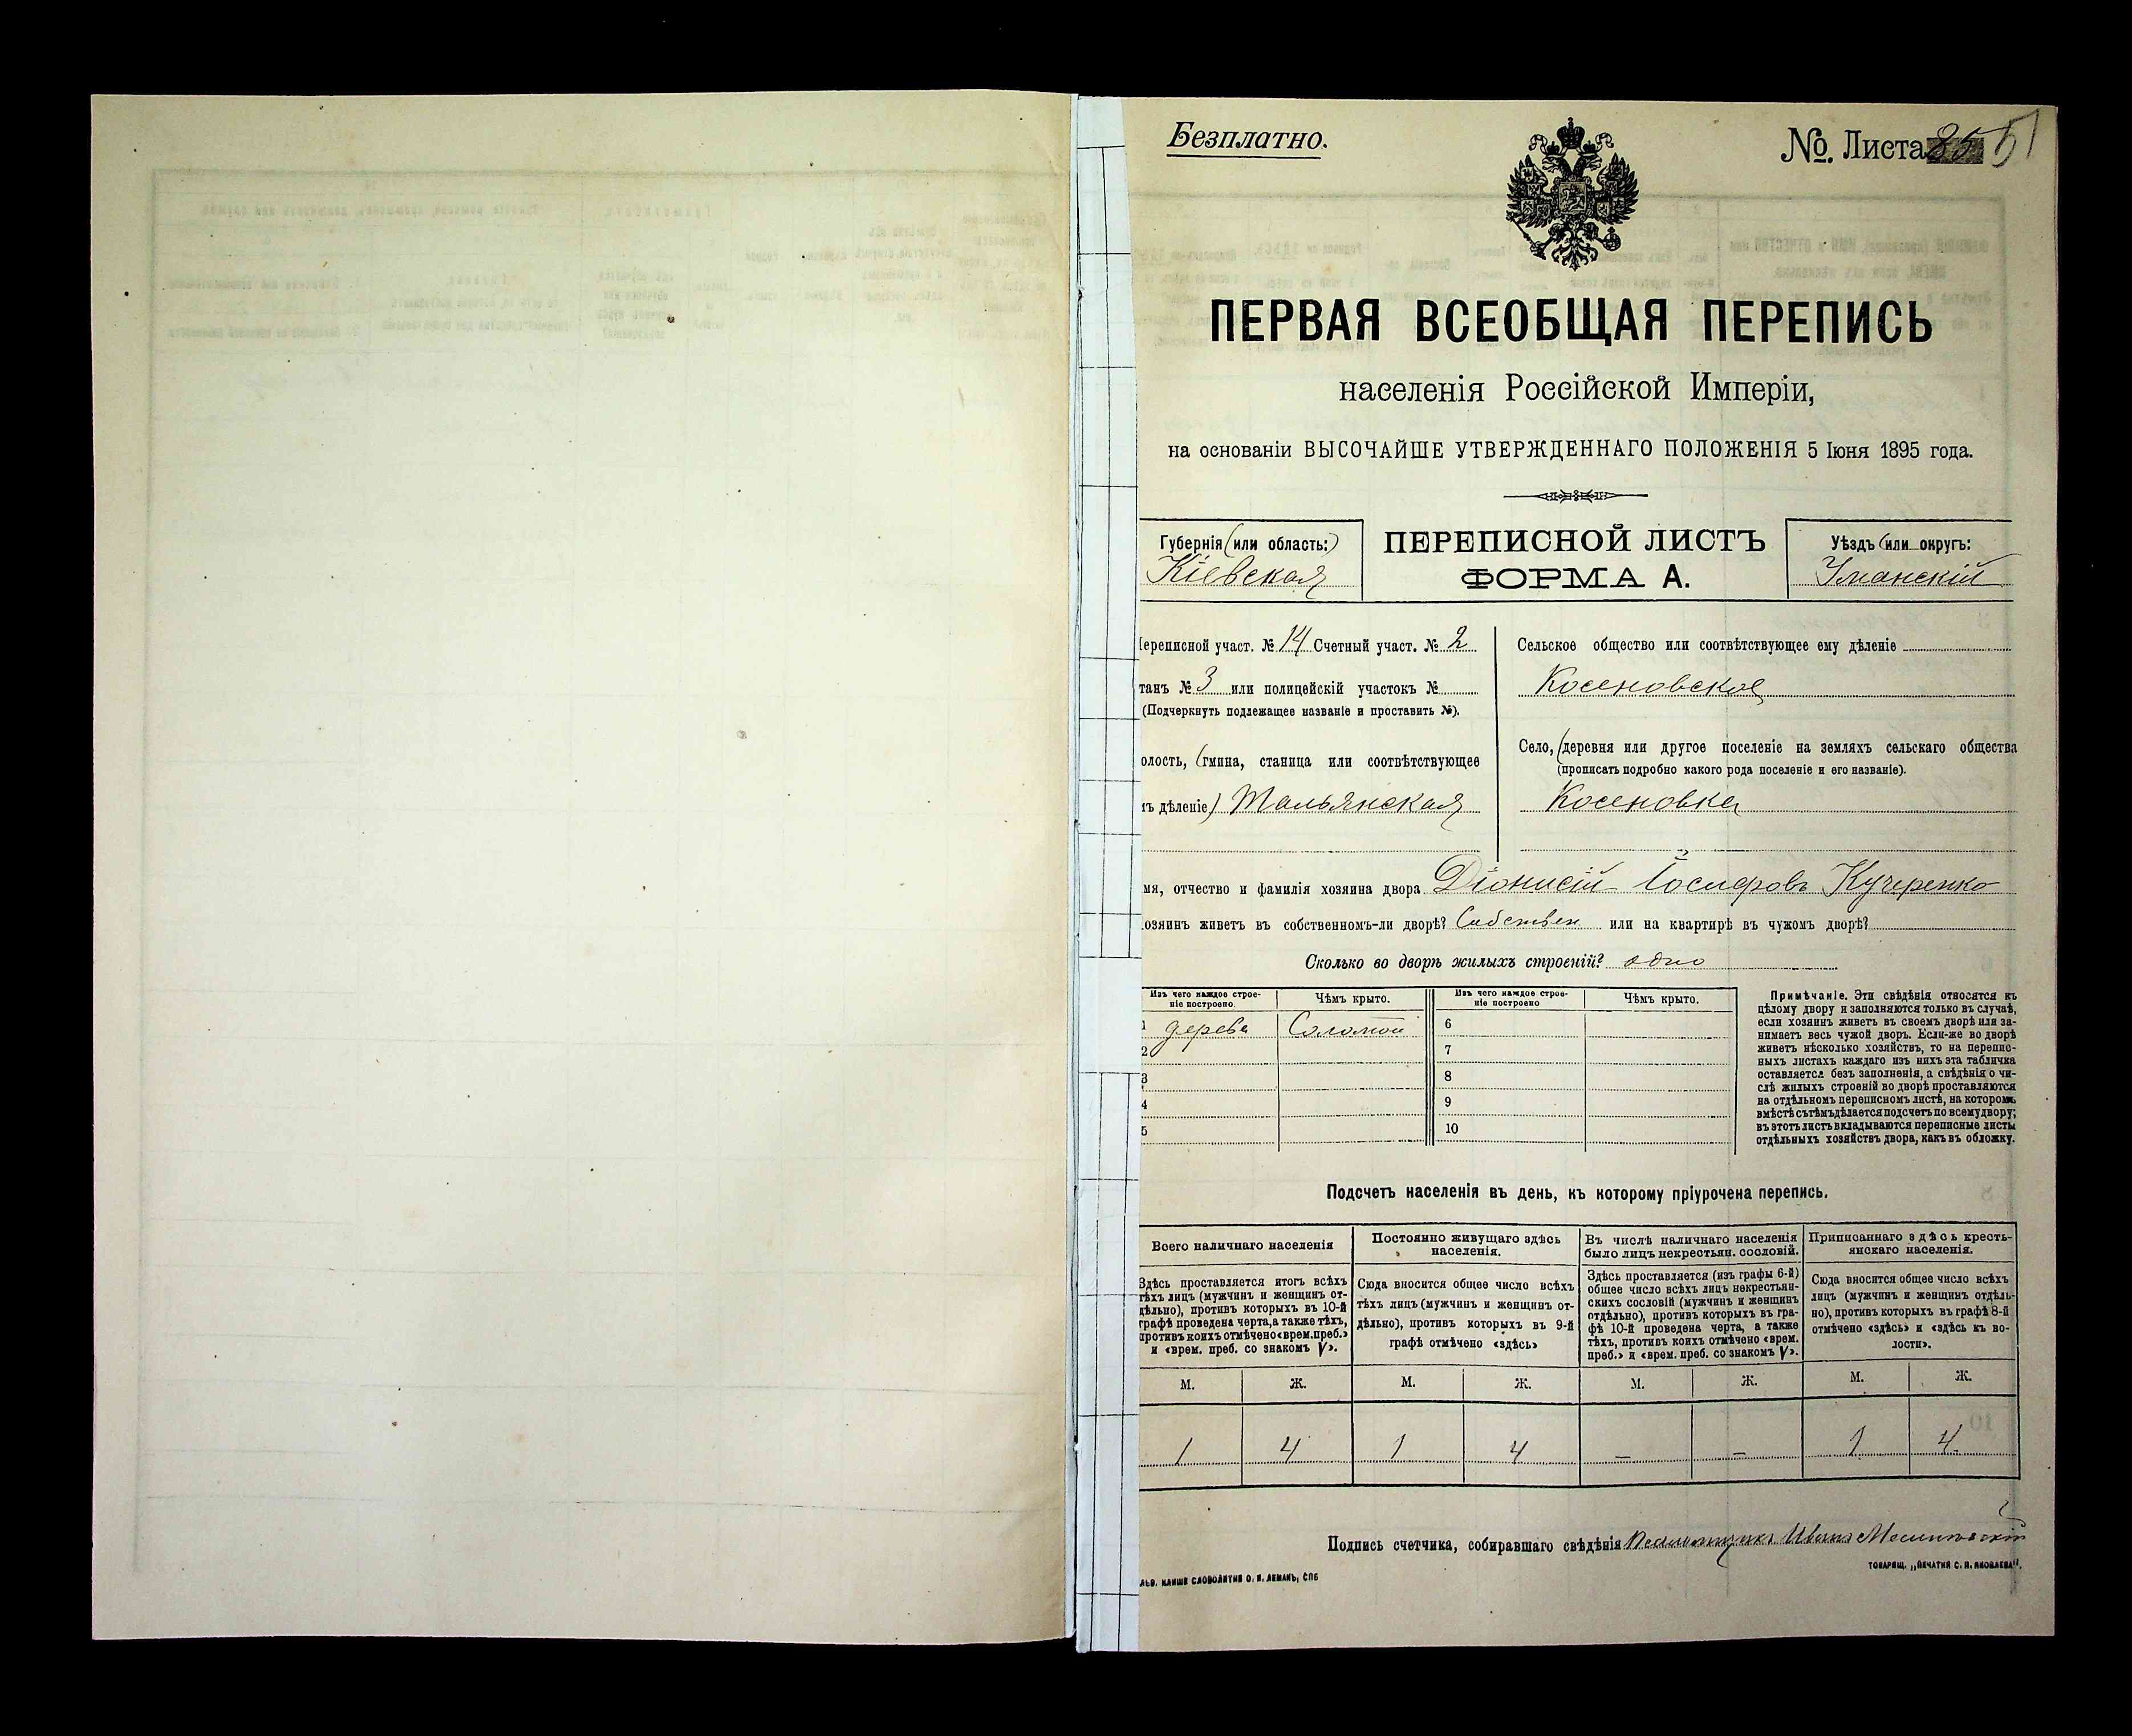 Безплатно.
№. Листа 85 51
ПЕРВАЯ ВСЕОБЩАЯ ПЕРЕПИСЬ
населенія Россійской Имперіи,
на основаніи ВЫСОЧАЙШЕ УТВЕРЖДЕННАГО ПОЛОЖЕНІЯ 5 Іюня 1895 года.
Губернія (или область:)
Кіевская
ПЕРЕПИСНОЙ ЛИСТЪ
ФОРМА А.
Уѣздъ (или округъ:
Уманскій
ереписной участ. № 14 Счетный участ. № 2
танъ № 3 или полицейскій участокъ №
(Подчеркнуть подлежащее названіе и проставить №).
олость, (гмина, станица или соотвѣтствующее
ъ дѣленіе) Тальянская
Сельское общество или соотвѣтствующее ему дѣленіе
Косеновское
Село, (деревня или другое поселеніе на земляхъ сельскаго общества
(прописать подробно какого рода поселеніе и его названіе).
Косеновка
мя, отчество и фамилія хозяина двора Діонисій Іосифовъ Кучеренко
озяинъ живетъ въ собственномъ-ли дворѣ? Собствен или на квартирѣ въ чужомъ дворѣ?
Сколько во дворѣ жилыхъ строеній? одно
Изъ чего каждое строе-
ніе построено.
Чѣмъ крыто.
Изъ чего каждое строе-
ніе построено
Чѣмъ крыто.
1 дерева Соломой
2
3
4
5
6
7
8
9
10
Примѣчаніе. Эти свѣдѣнія относятся къ
цѣлому двору и заполняются только въ случаѣ,
если хозяинъ живетъ въ своемъ дворѣ или за-
нимаетъ весь чужой дворъ. Если-же во дворѣ
живетъ нѣсколько хозяйствъ, то на перепис-
ныхъ листахъ каждаго изъ нихъ эта табличка
оставляется безъ заполненія, а свѣдѣнія о чи-
слѣ жилыхъ строеній во дворѣ проставляются
на отдѣльномъ переписномъ листѣ, на которомъ
вмѣстѣ съ тѣмъ дѣлается подсчетъ по всему двору;
въ этотъ листъ вкладываются переписные листы
отдѣльныхъ хозяйствъ двора, какъ въ обложку.
Подсчетъ населенія въ день, къ которому пріурочена перепись.
Всего наличнаго населенія
Здѣсь проставляется итогъ всѣхъ
тѣхъ лицъ (мужчинъ и женщинъ от-
дѣльно), противъ которыхъ въ 10-й
графѣ проведена черта, а также тѣхъ,
противъ коихъ отмѣчено «врем. преб.»
и «врем. преб. со знакомъ V».
Постоянно живущаго здѣсь
населенія.
Сюда вносится общее число всѣхъ
тѣхъ лицъ (мужчинъ и женщинъ от-
дѣльно), противъ которыхъ въ 9-й
графѣ отмѣчено «здѣсь»
Въ числѣ наличнаго населенія
было лицъ некрестьян. сословій.
Здѣсь проставляется (изъ графы 6-й)
общее число всѣхъ лицъ некрестьян-
скихъ сословій (мужчинъ и женщинъ
отдѣльно), противъ которыхъ въ гра-
фѣ 10-й проведена черта, а также
тѣхъ, противъ коихъ отмѣчено «врем.
преб.» и «врем. преб. со знакомъ V».
Приписаннаго здѣсь кресть-
янскаго населенія.
Сюда вносится общее число всѣхъ
лицъ (мужчинъ и женщинъ отдѣль-
но), противъ которыхъ въ графѣ 8-й
отмѣчено «здѣсь» и «здѣсь къ во-
лости».
М. Ж. М. Ж. М. Ж. М. Ж.
1 4 1 4 – – 1 4.
Подпись счетчика, собиравшаго свѣдѣнія Псаломщикъ Иванъ
ЛЬВ. КЛИШЕ СЛОВОЛИТНИ О. И. ЛЕМАНЪ, СПБ
ТОВАРИЩ. „ПЕЧАТНЯ С. П. ЯКОВЛЕВА".